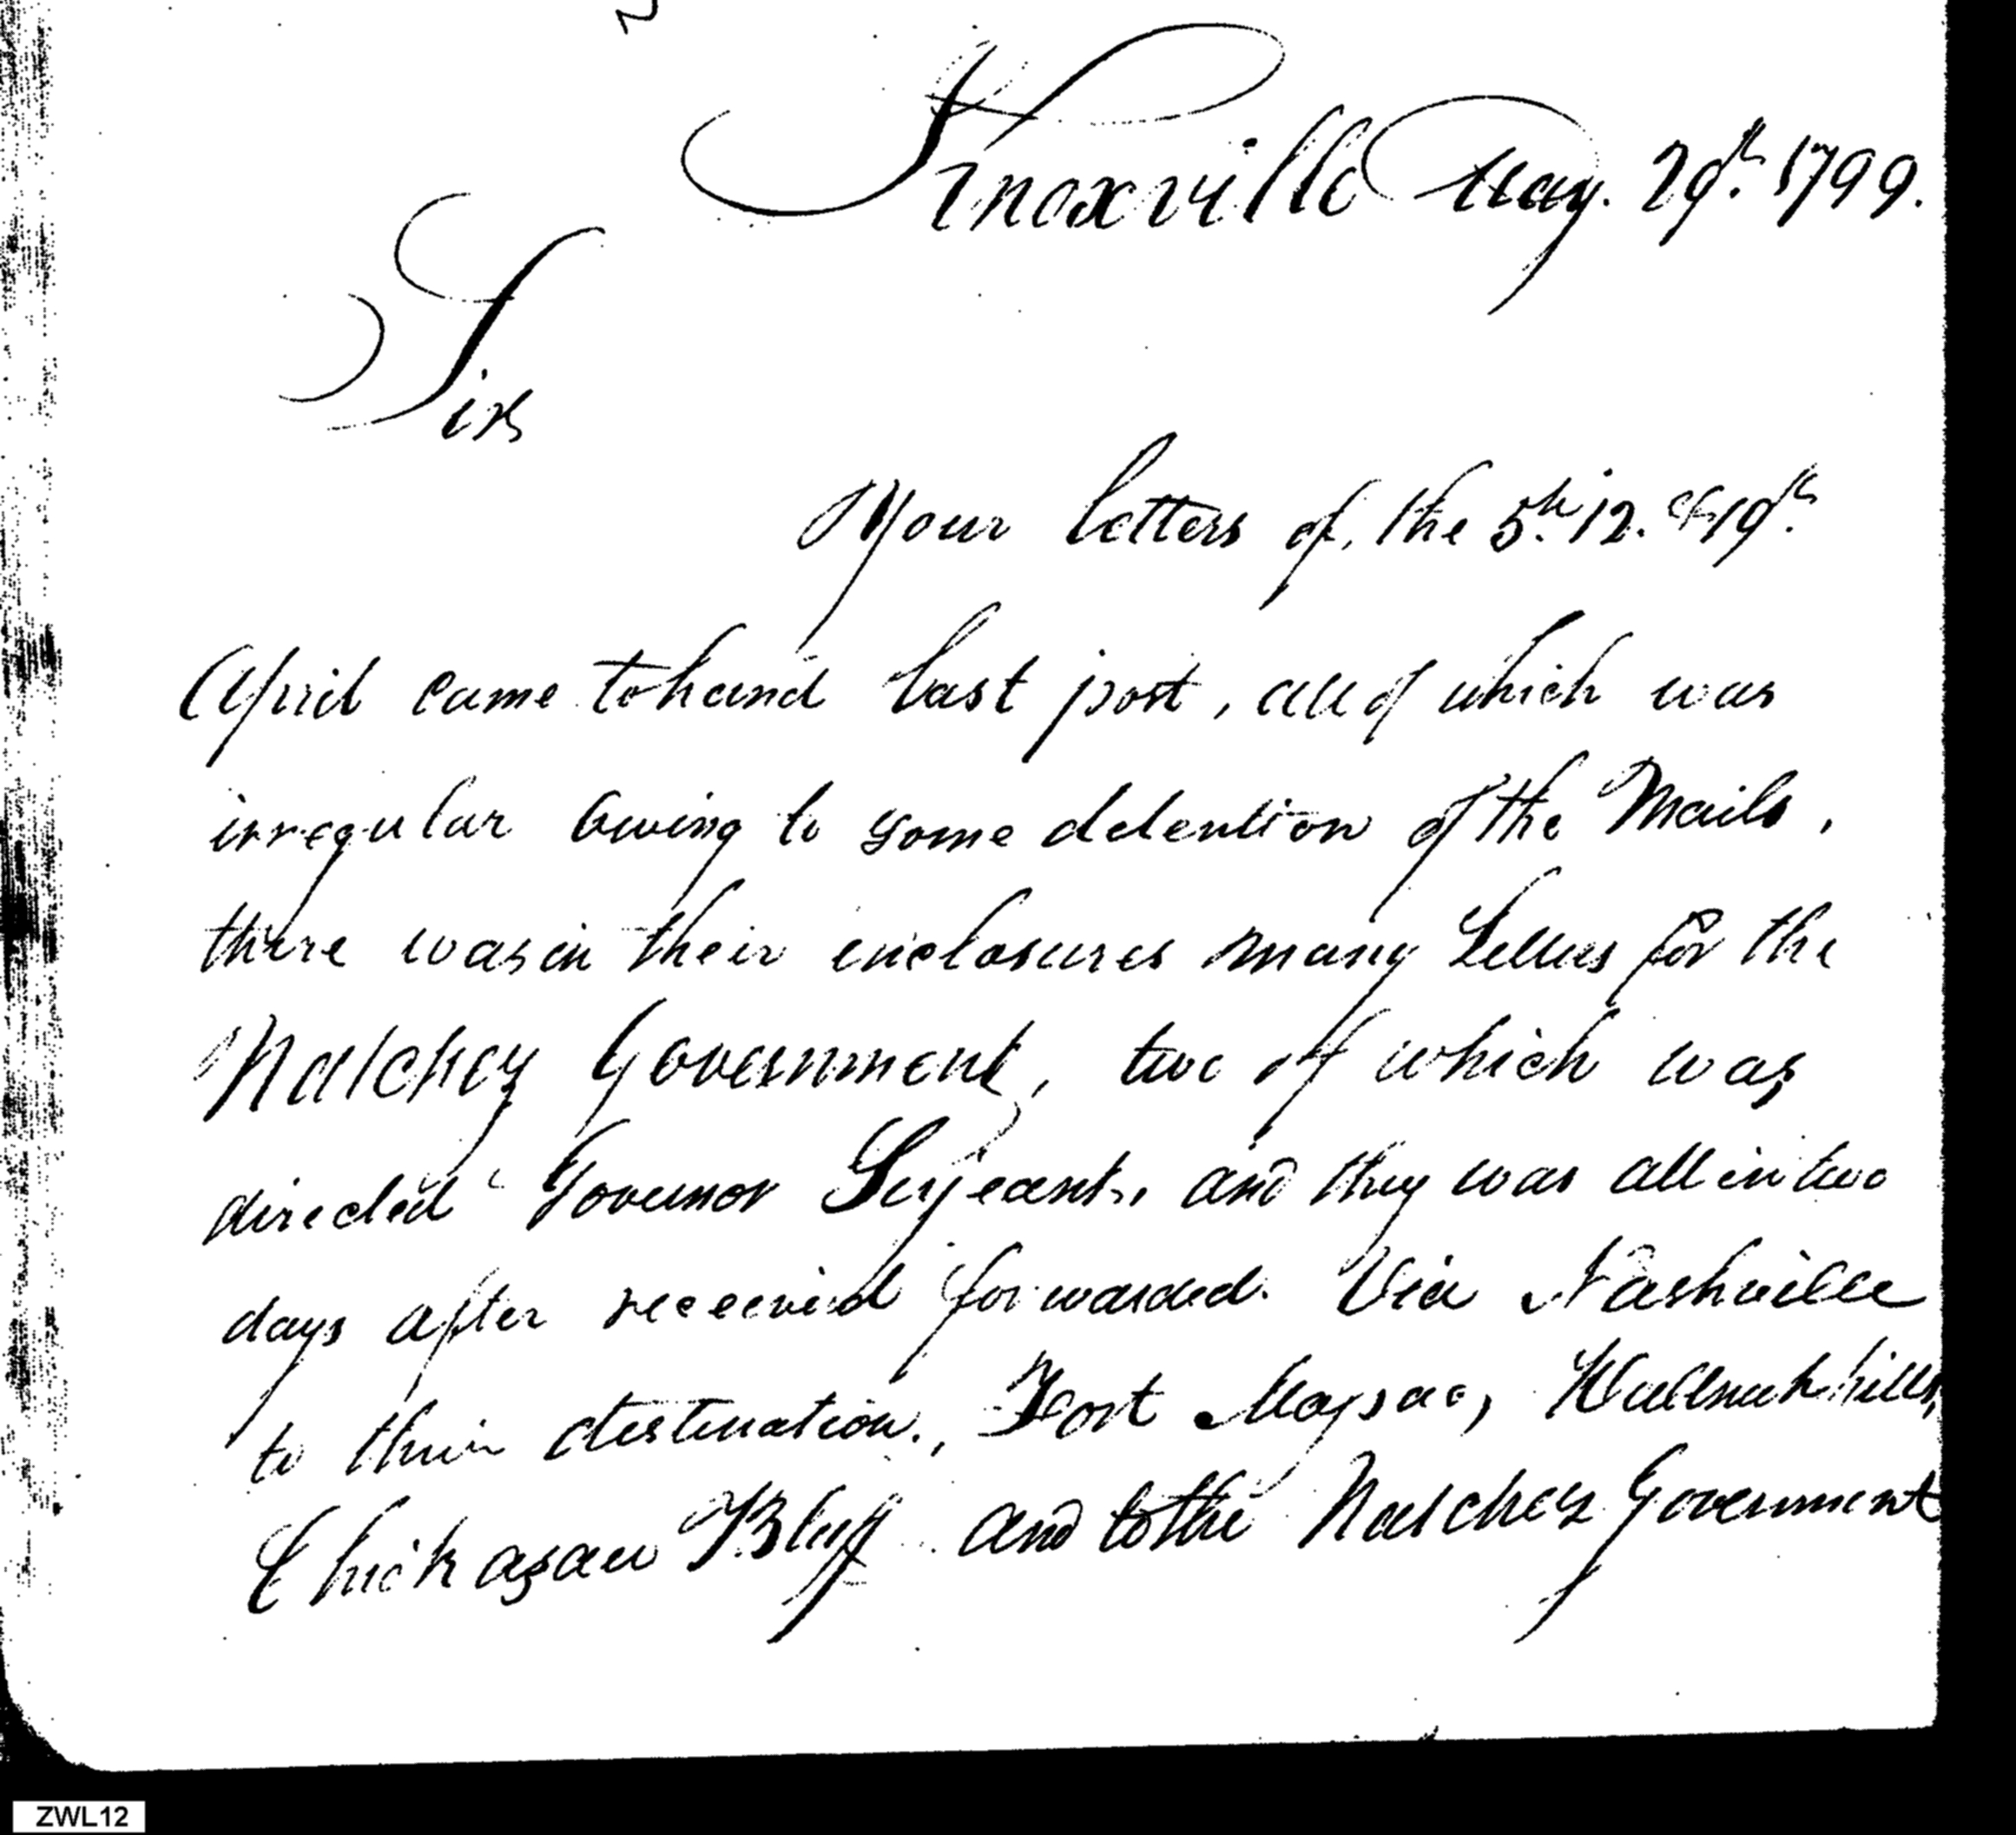 Knoxville May. 29th. 1799.
Sir
Your letters of, the 5th. 12. & 19th.
April came to hand last post, all of which was
irregular owing to some detention of the Mails,
there was in their enclosures many Letters for the
Natchez Government, two of which was
directed Governor Serjeant, and they was all in two
days after received forwarded. Via Nashville
to their destination., Fort Massac, Wallnut hills,
Chickasaw Bluff and to the Natchez Government
ZWL12